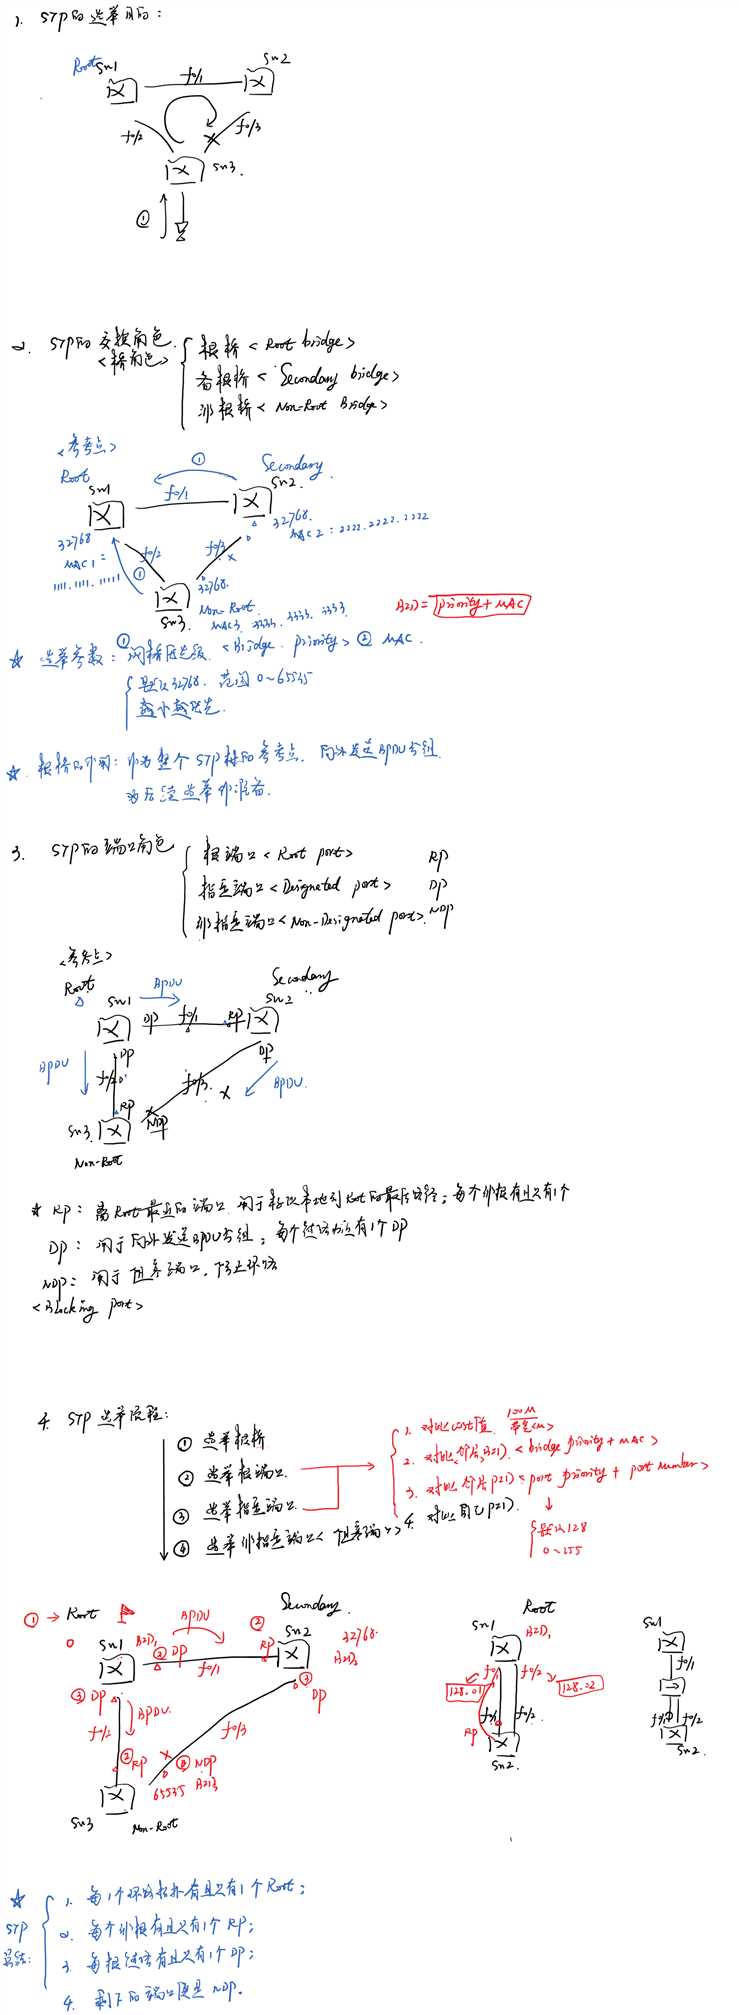 1. STP的选举目的:
Root
SW1
SW2
f0/1
f0/2
f0/3
SW3.
①
2. STP的交换角色.
<桥角色>
根桥 < Root bridge>
备根桥 < Secondary bridge>
非根桥 < Non-Root Bridge>
<参考点>
Root
SW1
①
Secondary
SW2
f0/1
32768
MAC1 =
1111.1111.1111
f0/2
①
f0/3
32768.
MAC2 : 2222.2222.2222
32768.
Non-Root.
SW3.
MAC3. 3333.3333.3333
BID = priority + MAC
☆ 选举参数: ① 网桥优先级 <Bridge priority> ② MAC.
默认32768. 范围 0~65535
越小越优先.
☆. 根桥的作用: 作为整个STP树的参考点. 向外发送BPDU分组.
为后续选举作准备.
3. STP的端口角色
根端口 < Root port> RP
指定端口 <Designated port> DP
非指定端口 <Non-Designated port> NDP
<参考点>
Root
SW1
BPDU
Secondary
SW2
DP
f0/1
RP
BPDU
DP
f0/2
RP
DP
f0/3.
BPDU.
SW3
NDP
Non-Root
* RP: 离Root最近的端口 用于标识本地到Root的最佳路径; 每个非根有且只有1个
DP: 用于向外发送BPDU分组; 每个链路有且只有1个DP
NDP: 用于阻塞端口, 防止环路
<Blocking port>
4. STP 选举流程:
① 选举根桥
② 选举根端口
③ 选举指定端口
④ 选举非指定端口 < 阻塞端口>
1. 对比cost值 100M
带宽(M)
2. 对比 价 BID. < bridge priority + MAC >
3. 对比 PID < port priority + port number>
4. 对比 PID.
默认128
0~255
① → Root
0
SW1
BID1
② DP
BPDU
f0/1
②
RP
Secondary.
SW2
32768.
BID2
③
DP
③ DP
BPDU.
f0/2
② RP
f0/3
④ NDP
65535 BID3
SW3
Non-Root
Root
SW1
BID1
f0/1
f0/2
128.01
128.02
f0/1
f0/2
RP
SW2.
SW1
f0/1
f0/1
f0/2
SW2.
☆
STP
总结:
1. 每1个环路拓扑有且只有1个Root;
2. 每个非根有且只有1个 RP;
3. 每根链路有且只有1个 DP;
4. 剩下的端口便是 NDP.